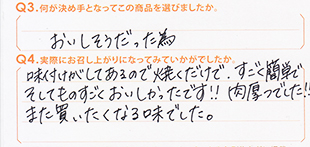 Q3.何が決め手となってこの商品を選びましたか。
おいしそうだった為
Q4.実際にお召し上がりになってみていかがでしたか。
味付けがしてあるので焼くだけで、すごく簡単で
そしてものすごくおいしかったです!! 肉厚つでした!!
また買いたくなる味でした。